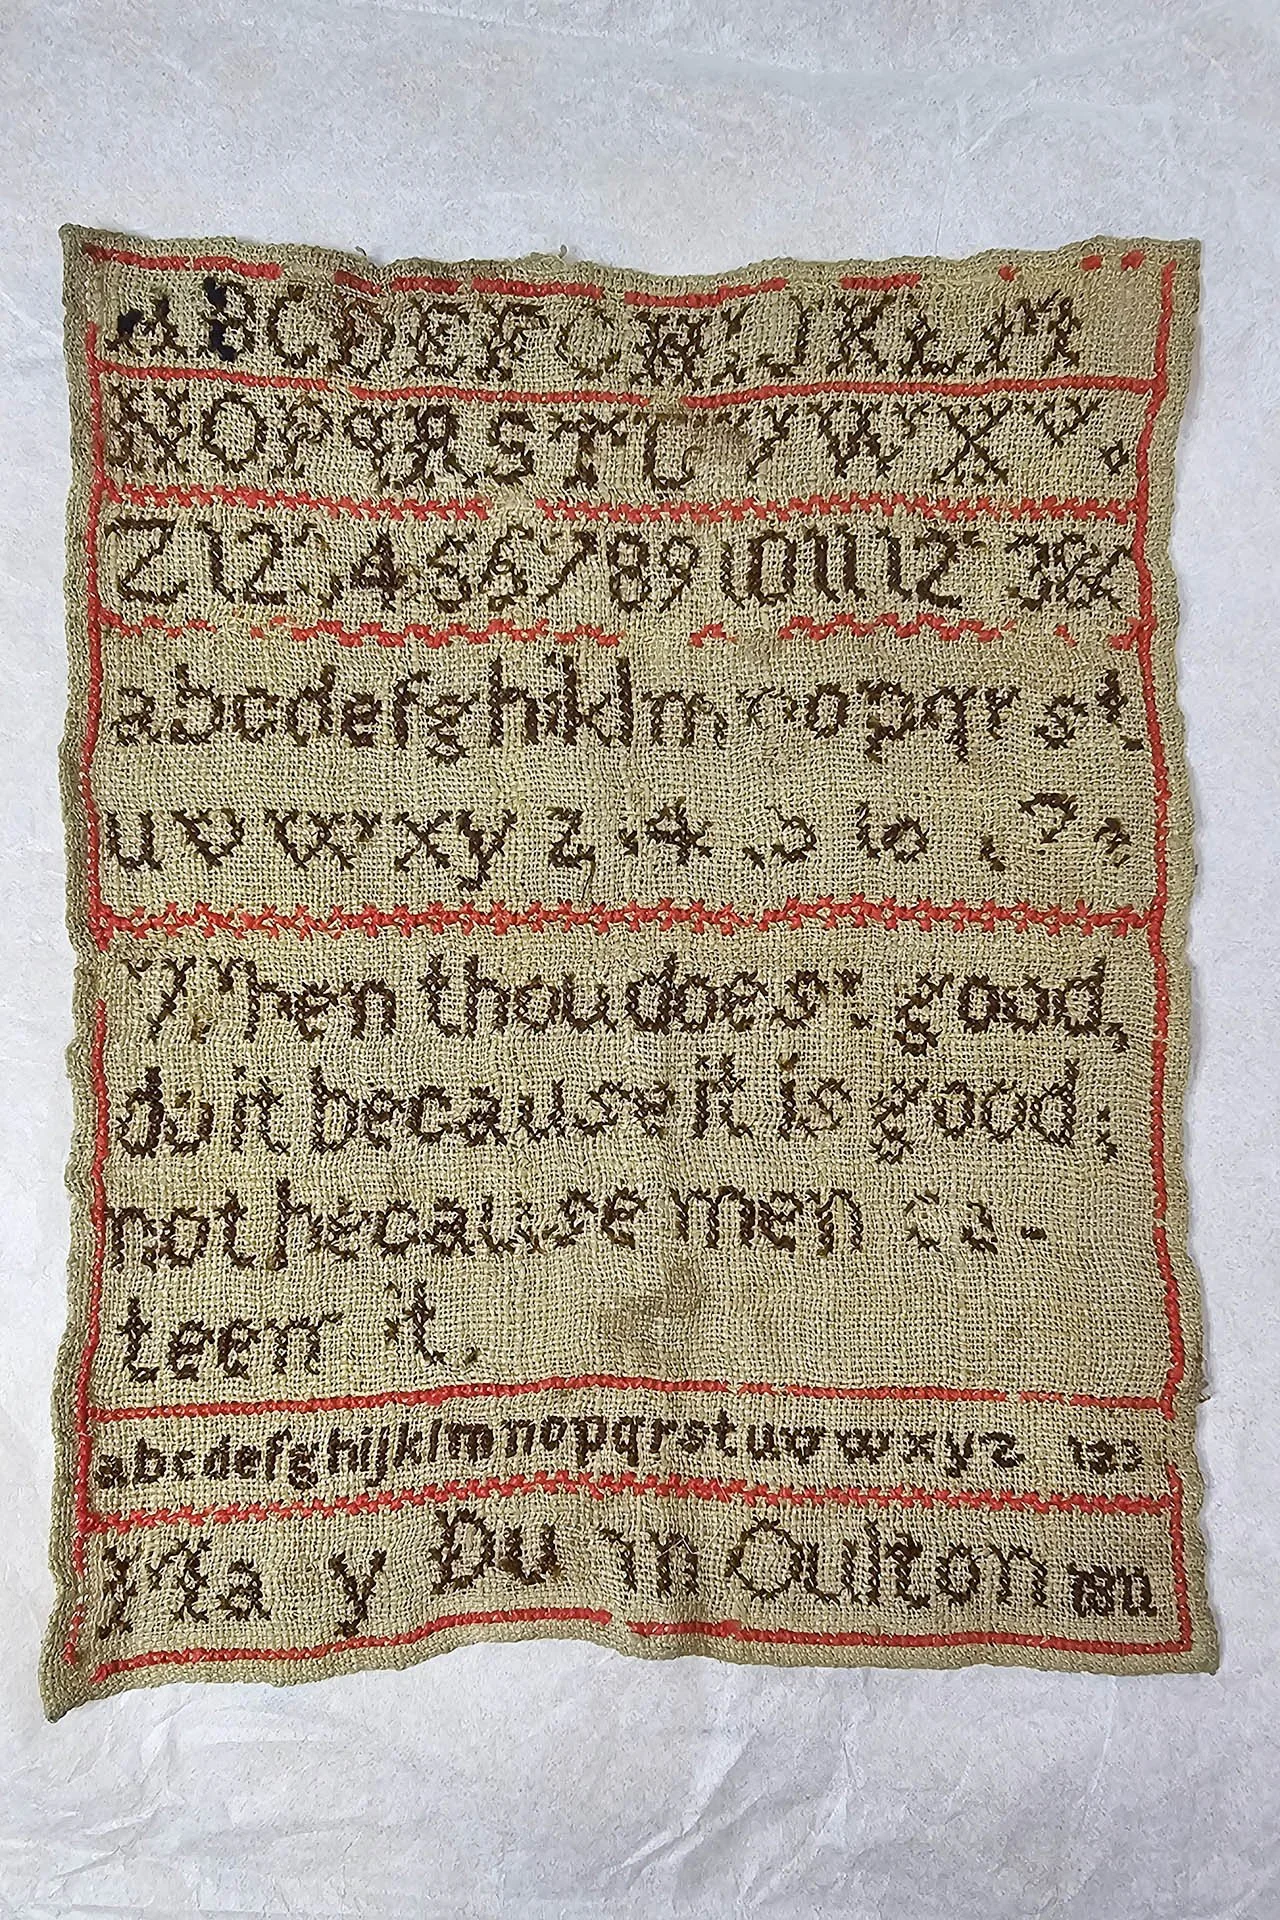 ABCDEFGHIJKLM
NOPQRSTUVWX
Z123456789 10 11 12 &
abcdefghiklmnopqrst
uvwxyz
When thou doest good,
do it because it is good;
not because men es-
teem it.
abcdefghijklmnopqrstuvwxyz 123
Oulton